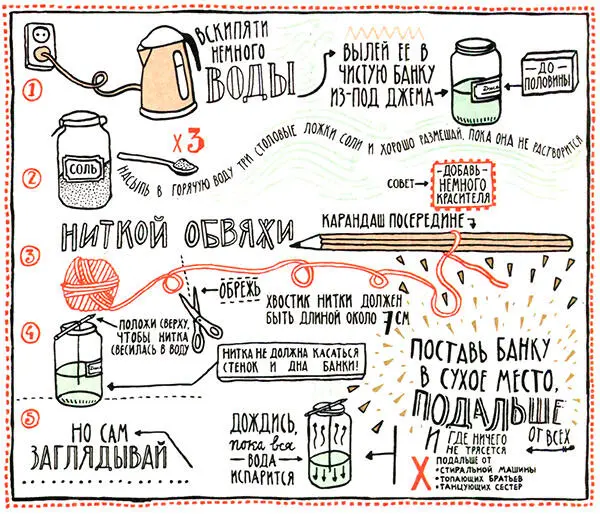 1
ВСКИПЯТИ
НЕМНОГО
ВОДЫ
ВЫЛЕЙ ЕЕ В
ЧИСТУЮ БАНКУ
ИЗ-ПОД ДЖЕМА
Джем
-ДО-
ПОЛОВИНЫ
2
СОЛЬ
X 3
НАСЫПЬ В ГОРЯЧУЮ ВОДУ ТРИ СТОЛОВЫЕ ЛОЖКИ СОЛИ И ХОРОШО РАЗМЕШАЙ, ПОКА ОНА НЕ РАСТВОРИТСЯ
СОВЕТ
-ДОБАВЬ-
НЕМНОГО
КРАСИТЕЛЯ
3
НИТКОЙ ОБВЯЖИ
КАРАНДАШ ПОСЕРЕДИНЕ
ОБРЕЖЬ
ХВОСТИК НИТКИ ДОЛЖЕН
БЫТЬ ДЛИНОЙ ОКОЛО 7 СМ
4
ПОЛОЖИ СВЕРХУ,
ЧТОБЫ НИТКА
СВЕСИЛАСЬ В ВОДУ
НИТКА НЕ ДОЛЖНА КАСАТЬСЯ
СТЕНОК И ДНА БАНКИ!
ПОСТАВЬ БАНКУ
В СУХОЕ МЕСТО,
ПОДАЛЬШЕ
ОТ ВСЕХ
И ГДЕ НИЧЕГО
НЕ ТРЯСЕТСЯ
X ПОДАЛЬШЕ ОТ
•СТИРАЛЬНОЙ МАШИНЫ
•ТОПАЮЩИХ БРАТЬЕВ
•ТАНЦУЮЩИХ СЕСТЕР
5
ДОЖДИСЬ,
пока вся
ВОДА
ИСПАРИТСЯ
НО САМ
ЗАГЛЯДЫВАЙ